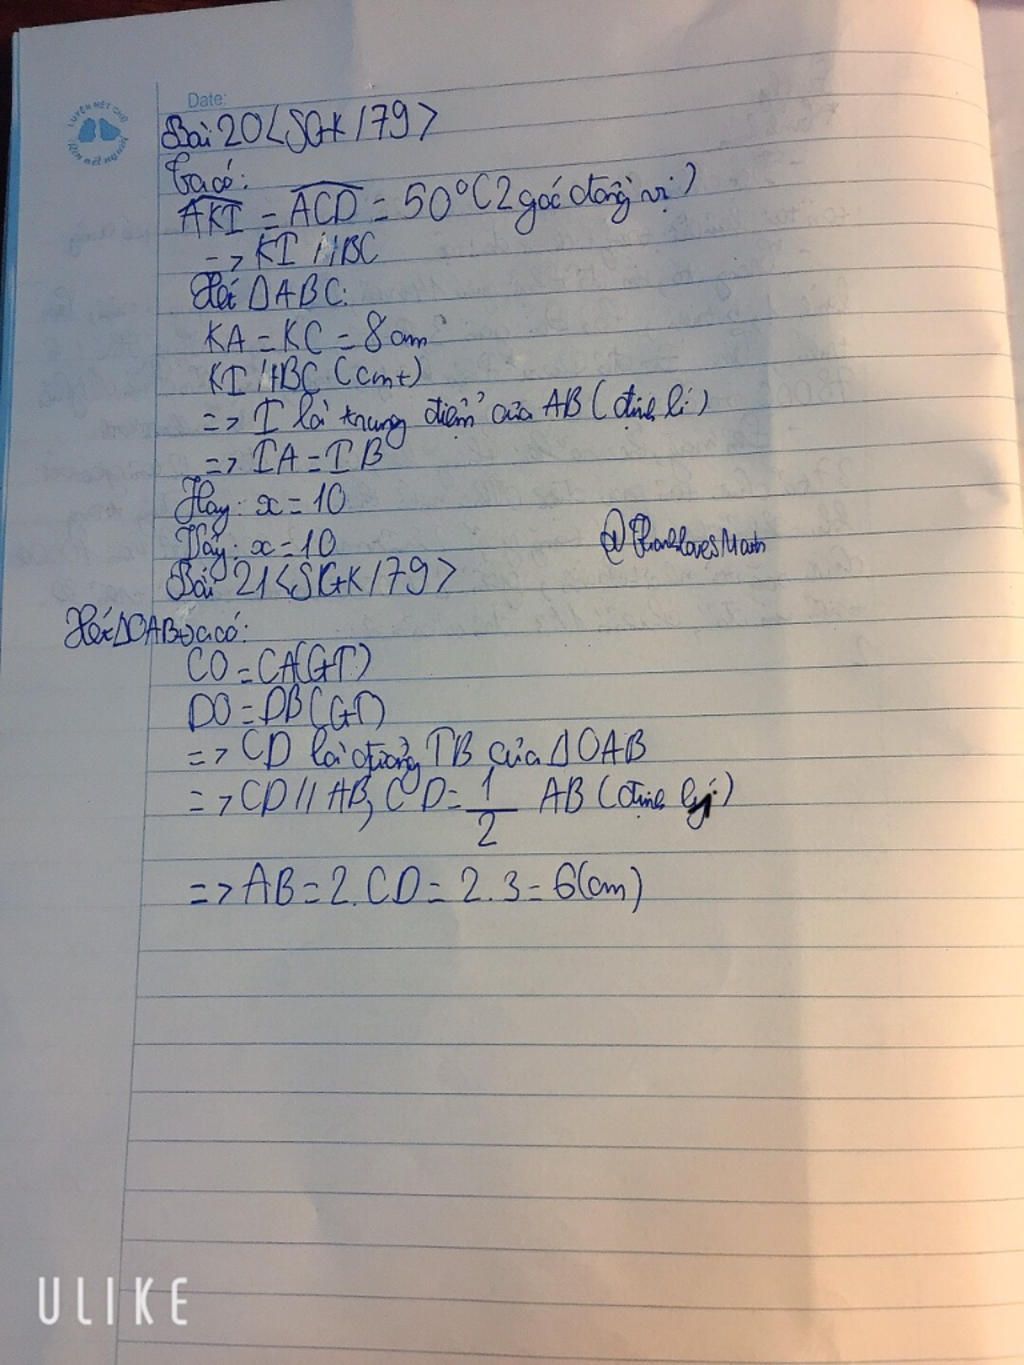 LUYỆN NÉT CHỮ
Rèn nết người
Date:
Bài 20 <SGK/79>
Ta có:
AKI = ACD = 50° (2 góc đồng vị)
=> KI // BC
Xét ΔABC:
KA = KC = 8cm
KI // BC (cmt)
=> I là trung điểm của AB (định lí)
=> IA = IB
Hay: x = 10
Vậy: x = 10
@ThanhlovesMath
Bài 21 <SGK/79>
Xét ΔOAB ta có:
CO = CA (GT)
DO = DB (GT)
=> CD là đường TB của ΔOAB
=> CD // AB, CD = 1/2 AB (định lý)
=> AB = 2.CD = 2.3 = 6(cm)
ULIKE